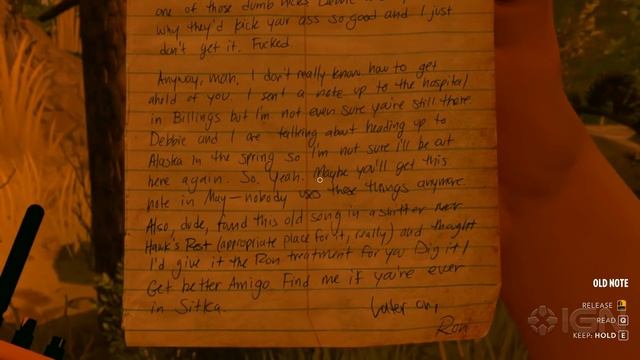 one of those dumb hicks Debbie
why they'd kick your ass so good and I just
don't get it. Fucked.
Anyway, man, I don't really know how to get
ahold of you. I sent a note up to the hospital
in Billings but I'm not even sure you're still there.
Debbie and I are talking about heading up to
Alaska in the spring so I'm not sure I'll be out
here again. So, yeah. Maybe you'll get this
note in May—nobody uses these things anymore.
Also, dude, found this old song in a shitter near
Hawk's Rest (appropriate place for it, really) and thought
I'd give it the Ron treatment for you. Dig it!
Get better Amigo. Find me if you're ever
in Sitka.
Later on,
Ron
OLD NOTE
RELEASE
READ Q
KEEP: HOLD E
IGN